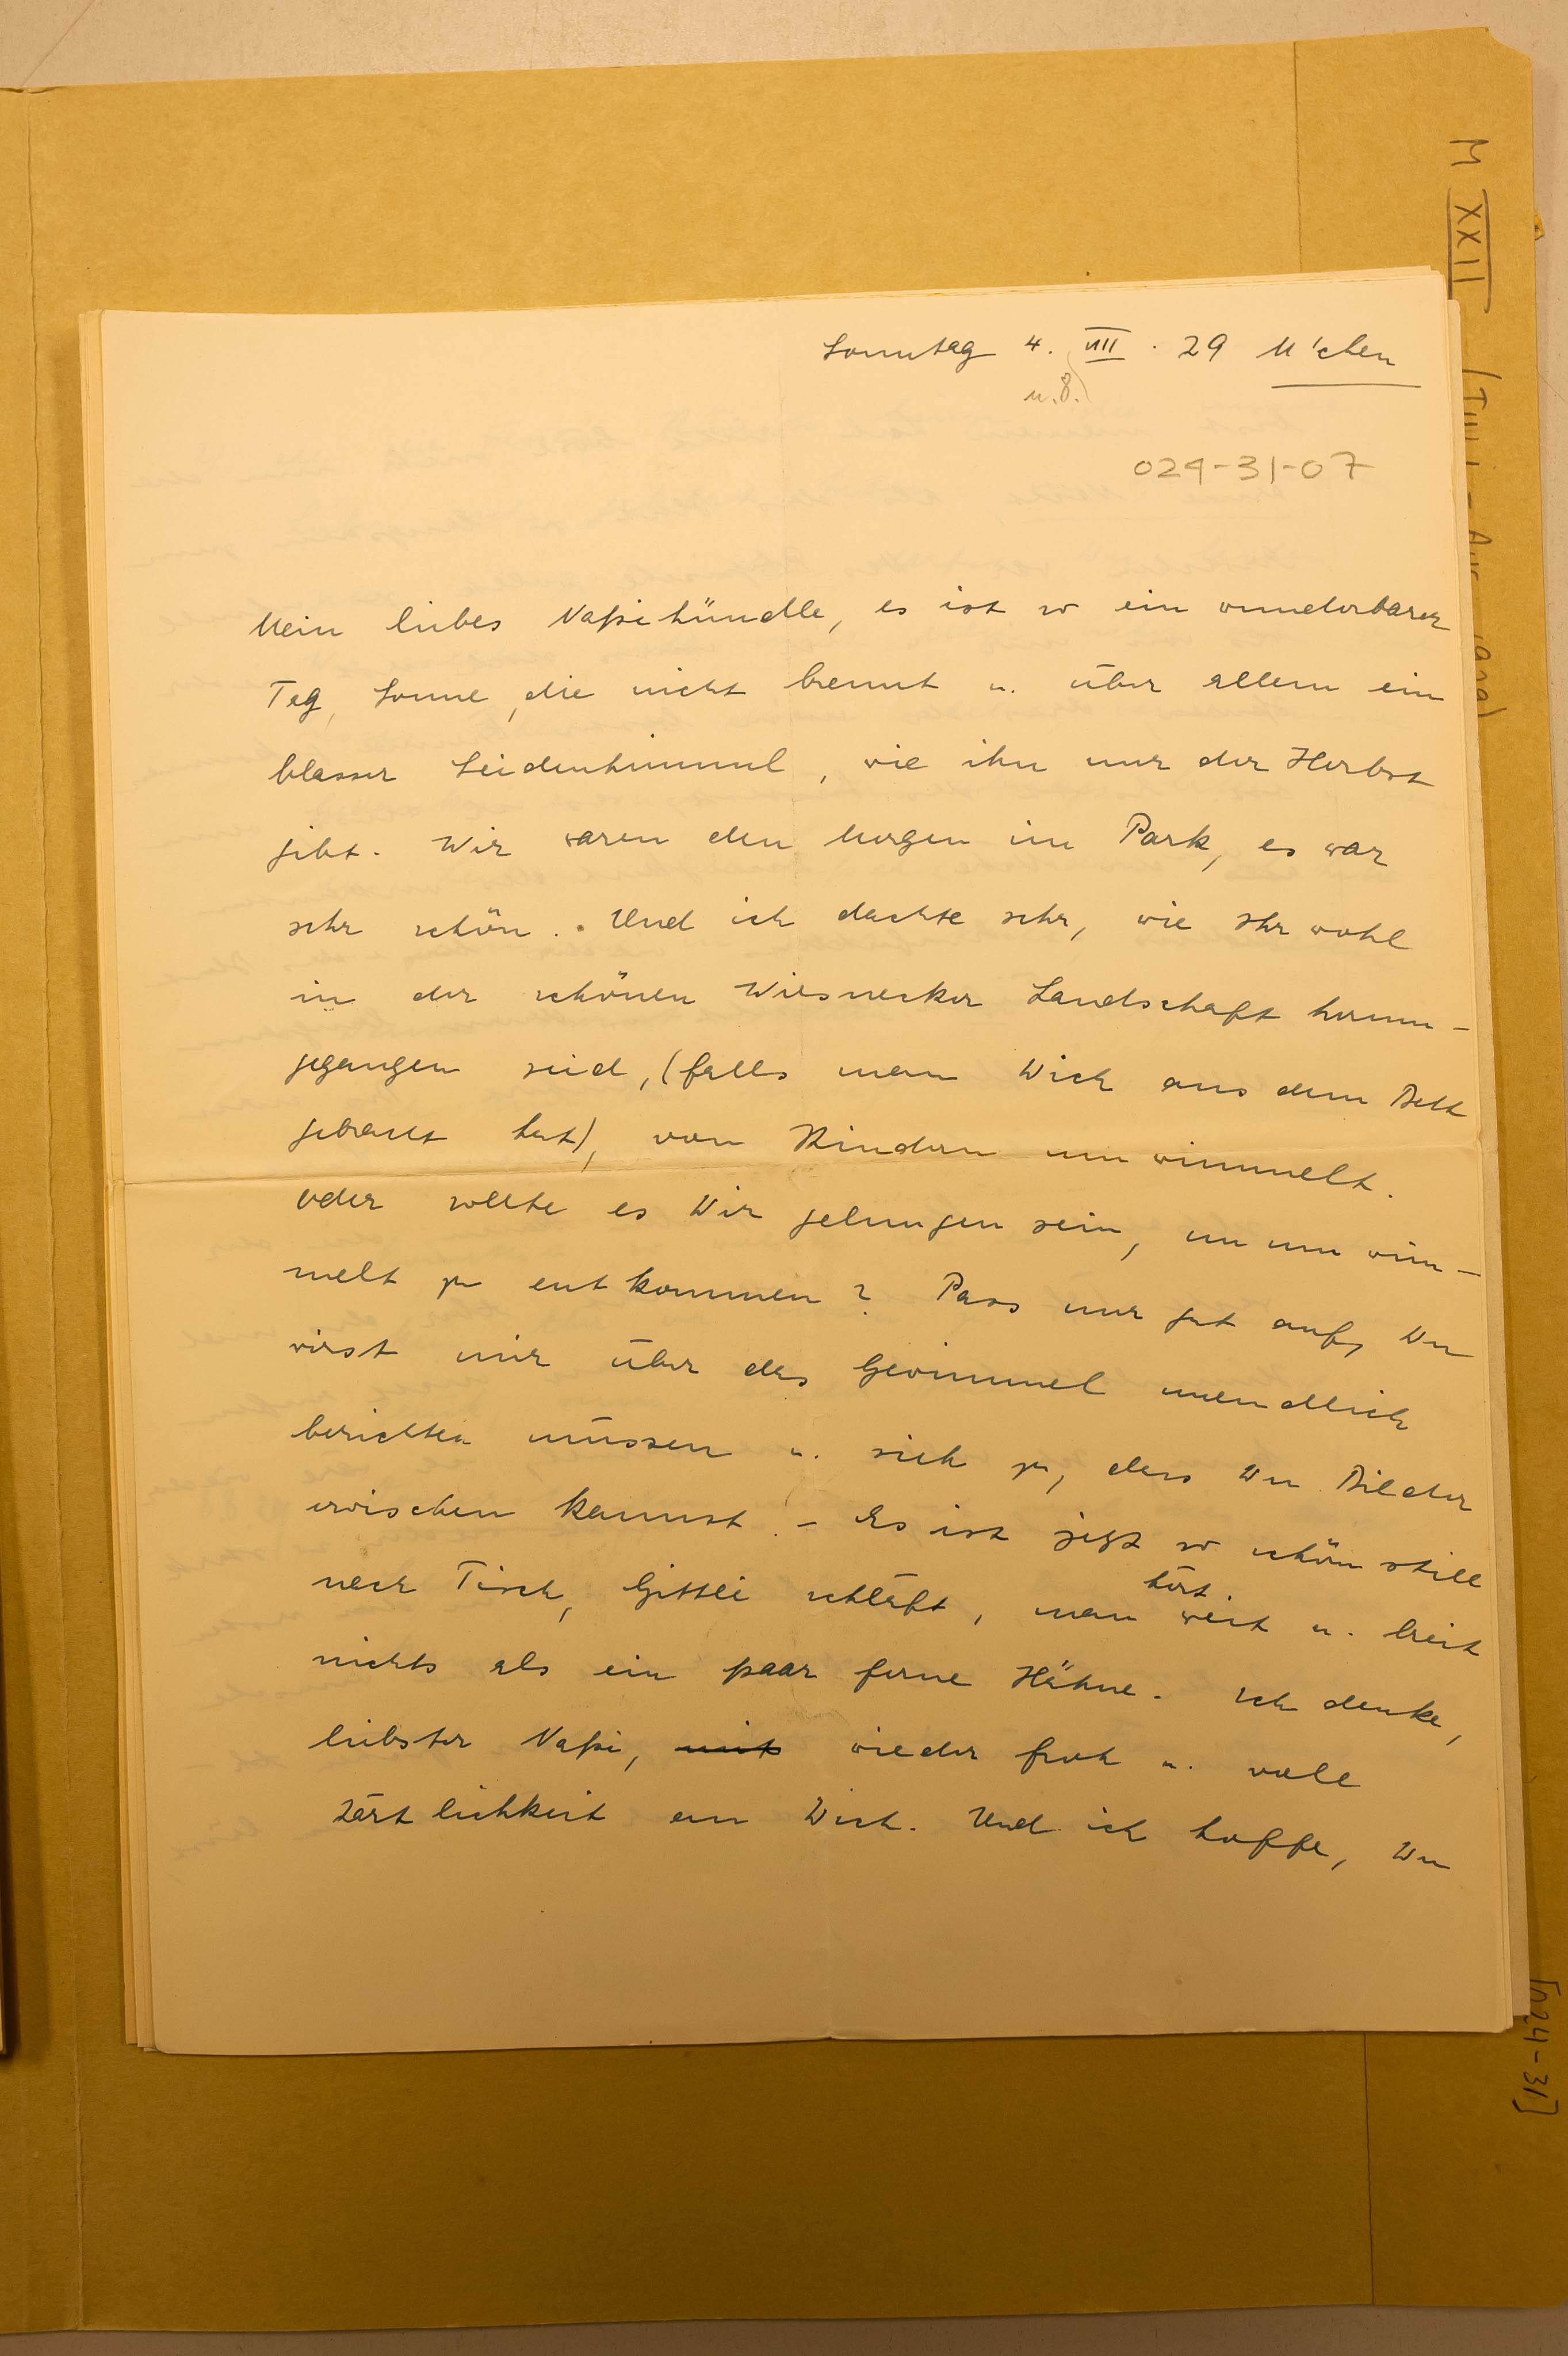 Sonntag 4. VIII. 29 M'chen
u. 8.)
024-31-07
Mein liebes Napihündle, es ist so ein wunderbarer
Tag, Sonne, die nicht brennt u. über allem ein
blasser Seidenhimmel, wie ihn nur der Herbst
gibt. Wir waren den Morgen im Park, es war
sehr schön. Und ich dachte sehr, wie Ihr wohl
in der schönen Wiesnecker Landschaft herum-
gegangen seid, (falls man Dich aus dem Bett
gebracht hat), von Kindern umwimmelt.
Oder sollte es Dir gelungen sein, un umwim-
melt zu entkommen? Pass nur gut auf, Du
wirst mir über das Gewimmel unendlich
berichten müssen u. sieh zu, dass Du Bilder
erwischen kannst. - Es ist jetzt so schön still
nach Tisch, Gittli schläft, man hört weit u. breit
nichts als ein paar ferne Hähne. Ich denke,
liebster Napi, mit wieder froh u. voll
Zärtlichkeit an Dich. Und ich hoffe, Du
M XXII
[024-31]